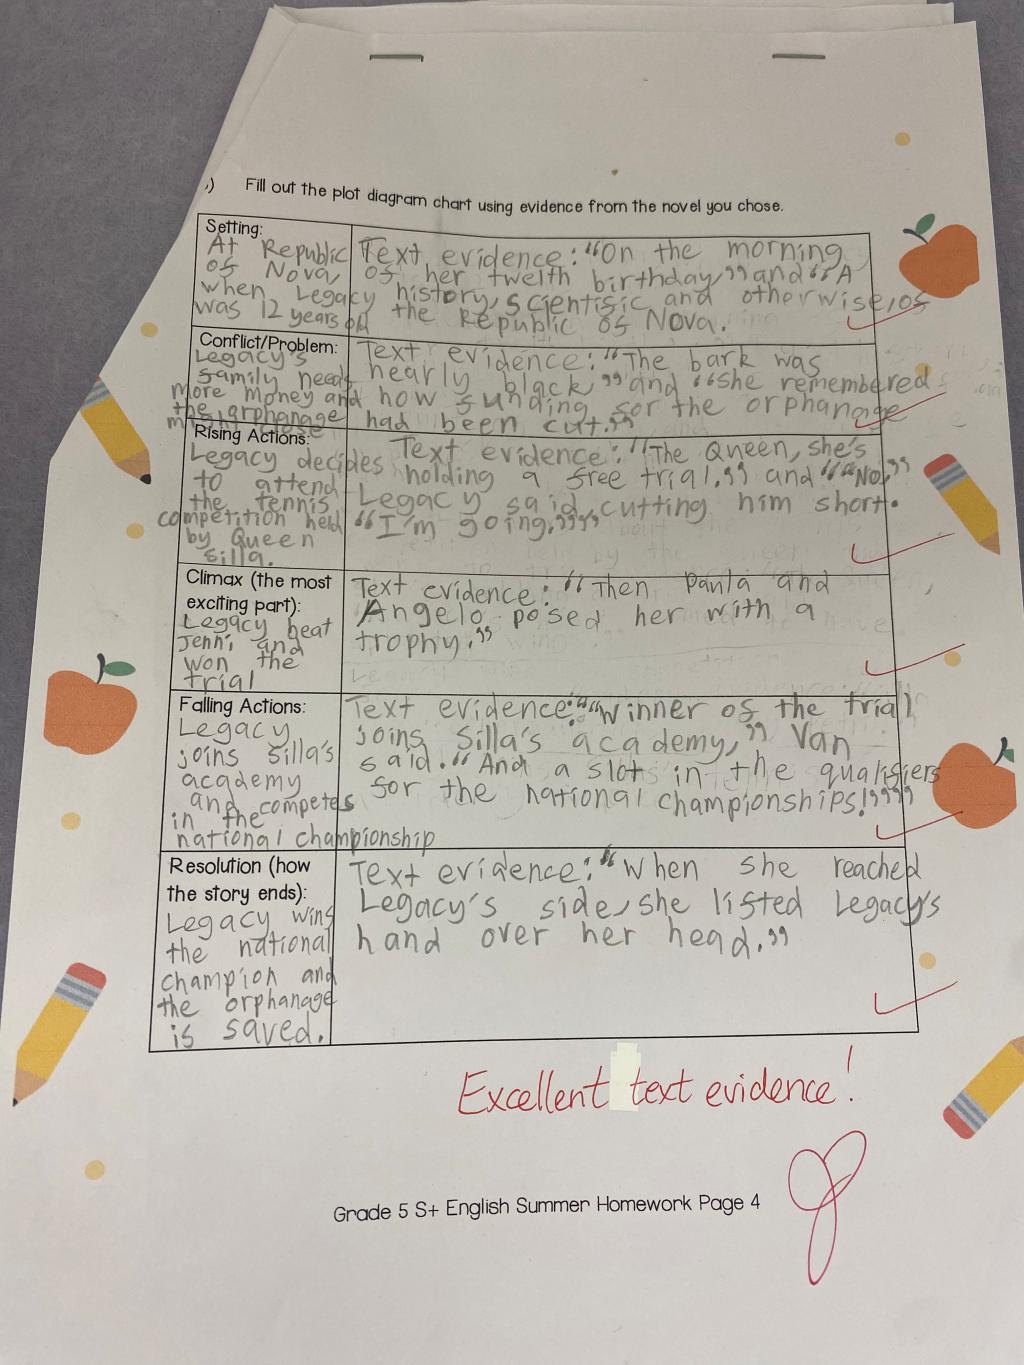 .) Fill out the plot diagram chart using evidence from the novel you chose.
Setting:
At Republic
of Nova,
when Legacy
was 12 years old
Text evidence: "On the morning
of her twelth birthday," and "A
history, scientific and otherwise, of
the Republic of Nova.
Conflict/Problem:
Legacy's
family needs
more money and
the orphanage
might close
Text evidence: "The bark was
nearly black," and "She remembered
how funding for the orphanage
had been cut."
Rising Actions:
Legacy decides
to attend
the tennis
competition held
by Queen
Silla.
Text evidence: "The Queen, she's
holding a free trial." and ""No,"
Legacy said, cutting him short.
"I'm going.""
Climax (the most
exciting part):
Legacy beat
Jenni and
won the
trial
Text evidence: "Then Paula and
Angelo posed her with a
trophy."
Falling Actions:
Legacy
joins Silla's
academy
and competes
in the
national championship
Text evidence: ""Winner of the trial
joins Silla's academy," Van
said. "And a slot in the qualifiers
for the national championships!""
Resolution (how
the story ends):
Legacy wins
the national
champion and
the orphanage
is saved.
Text evidence: "When she reached
Legacy's side, she lifted Legacy's
hand over her head."
Excellent text evidence!
Grade 5 S+ English Summer Homework Page 4